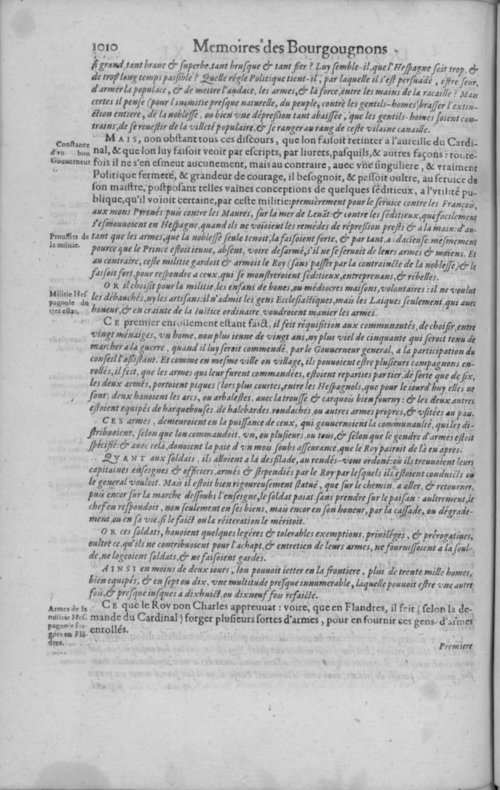 1010 Memoires des Bourgougnons
si grand, tant brane & superbe, tant brusque & tant fier? Luy semble-il, que l'Hespagne soit trop, &
de trop long temps paisible? Quelle régle Politique tient-il, par laquelle il s'est persuadé, estre seur,
d'armer la populace, & de mettre l'audace, les armes, & la force, entre les mains de la racaille? Mais
certes il pense (pour l'inimitié presque naturelle, du peuple, contre les gentils-homes) brasser l'extin-
ction entiere, de la noblesse, ou bien vne dépression tant abaissée, que les gentils-homes soient con-
trains, de se reuestir de la villeté populaire, & se ranger au rang de ceste vilaine canaille.
MAIS, non obstant tous ces discours, que lon faisoit retinter a l'aureille du Cardi-
Constance
nal, & que lon luy faisoit veoir par escripts, par liurets, pasquils, & autres façons: toute-
d'vn bon
fois il ne s'en esmeut aucunement, mais au contraire, auec vne singuliere, & vraiment
Gouuerneur
Politique fermeté, & grandeur de courage, il besognoit, & passoit oultre, au seruice de
son maistre, postposant telles vaines conceptions de quelques séditieux, a l'vtilité pu-
blique, qu'il voioit certaine, par ceste milice: premierement pour le seruice contre les Francois,
aux mons Pyrenés puis contre les Maures, sur la mer de Leuāt: & contre les séditieux, que facilement
s'esmouuoient en Hespagne, quand ils ne voioient les remédes de répression prests & a la main: d'au-
Prouffits de
tant que les armes, que la noblesse seule tenoit, la faisoient forte, & par tant, audacieuse: mesmement
la milicie.
pource que le Prince estoit ieune, absent, voire desarmé, s'il ne se seruoit de leurs armes & moiens. Et
au contraire, ceste milice gardoit & armoit le Roy (sans passer par la contraincte de la noblesse) & le
faisoit fort, pour respondre a ceux qui se monstreroient séditieux, entreprenans, & rebelles.
OR il choisit pour la milice, les enfans de bones, ou médiocres maisons, volontaires: il ne voulut
Milicie Hes
les débauchés, ny les artisans: il n'admit les gens Ecclesiastiques, mais les Laiques seulement, qui auec
pagnole du
honeur, & en crainte de la Iustice ordinaire voudroient manier les armes.
CE premier enrollement estant faict, il feit réquisition aux communautés, de choisir, entre
vingt ménaiges, vn home, non plus ieune de vingt ans, ny plus viel de cinquante qui seroit tenu de
marcher a la guerre, quand il luy seroit commendé, par le Gouuerneur general, a la participation du
conseil l'assistant. Et comme en mesme ville ou village, ils pouuoient estre plusieurs compagnons en-
rollés, il feit, que les armes qui leur furent commandées, estoient reparties par tier, de sorte que de six,
les deux armés, portoient piques (lors plus courtes, entre les Hespagnols, que pour le iourd'huy elles ne
sont) deux hauoient les arcs, ou arbalestes, auec la trousse & carquois bien fourny: & les deux autres
estoient équipés de harquebouses de halebardes rondaches, ou autres armes propres, & vsitées au païs.
CES armes, demeuroient en la puissance de ceux, qui gouuernoient la communauté, qui les di-
stribuoient, selon que lon commandoit, vn, ou plusieurs, ou tous, & selon que le gendre d'armes estoit
spécifié: & auec celà, donoient la païe d'vn mois soubs asseurance, que le Roy païroit de là en aprés.
QVANT aux soldats, ils alloient a la desfilade, au rendés-vous ordoné: où ils treuuoient leurs
capitaines enseignes & officiers, armés & stipendiés par le Roy par lesquels ils estoient conduicts où
le general vouloit. Mais il estoit bien rigoureusement statué, que sur le chemin, a aller, & retourner,
puis encor sur la marche dessoubs l'enseigne, le soldat païat, sans prendre sur le païsan: aultrement, le
chef en respondoit, non seulement en ses biens, mais encor en son honeur, par la cassade, ou dégrade-
ment, ou en sa vie, si le faict ou la réiteration le méritoit.
OR ces soldats, hauoient quelques legéres & tolerables exemptions, priuiléges, & prérogatiues,
oultre ce, qu'ils ne contribuoient pour l'achapt, & entretien de leurs armes, ne fournissoient a la soul-
de, ne logeoient soldats, & ne faisoient gardes.
AINSI en moins de deux iours, lon pouuoit ietter en la frontiere, plus de trente mille homes,
bien équipés, & en sept ou dix, vne multitude presque innumerable, laquelle pouuoit estre vne autre
fois, & presque iusques a dixhuict, ou dix neuf fois refaicte.
Armes de la
CE que le Roy Don Charles appreuuat: voire, que en Flandres, il feit (selon la de-
milicie Hes
mande du Cardinal) forger plusieurs sortes d'armes, pour en fournir ces gens d'armes
pagnole for
enrollés.
gées en Flā
dres.
Premiere